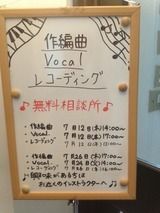 作編曲
Vocal
レコーディング
♪無料相談所♪
・作編曲 7月12日(木)14:00〜
・Vocal 7月12日(木)17:00〜
・レコーディング 7月12日
・作編曲 7月26日(木)
・Vocal
・レコーディング 7月26日
興味がある方は
お近くのインストラクターへ